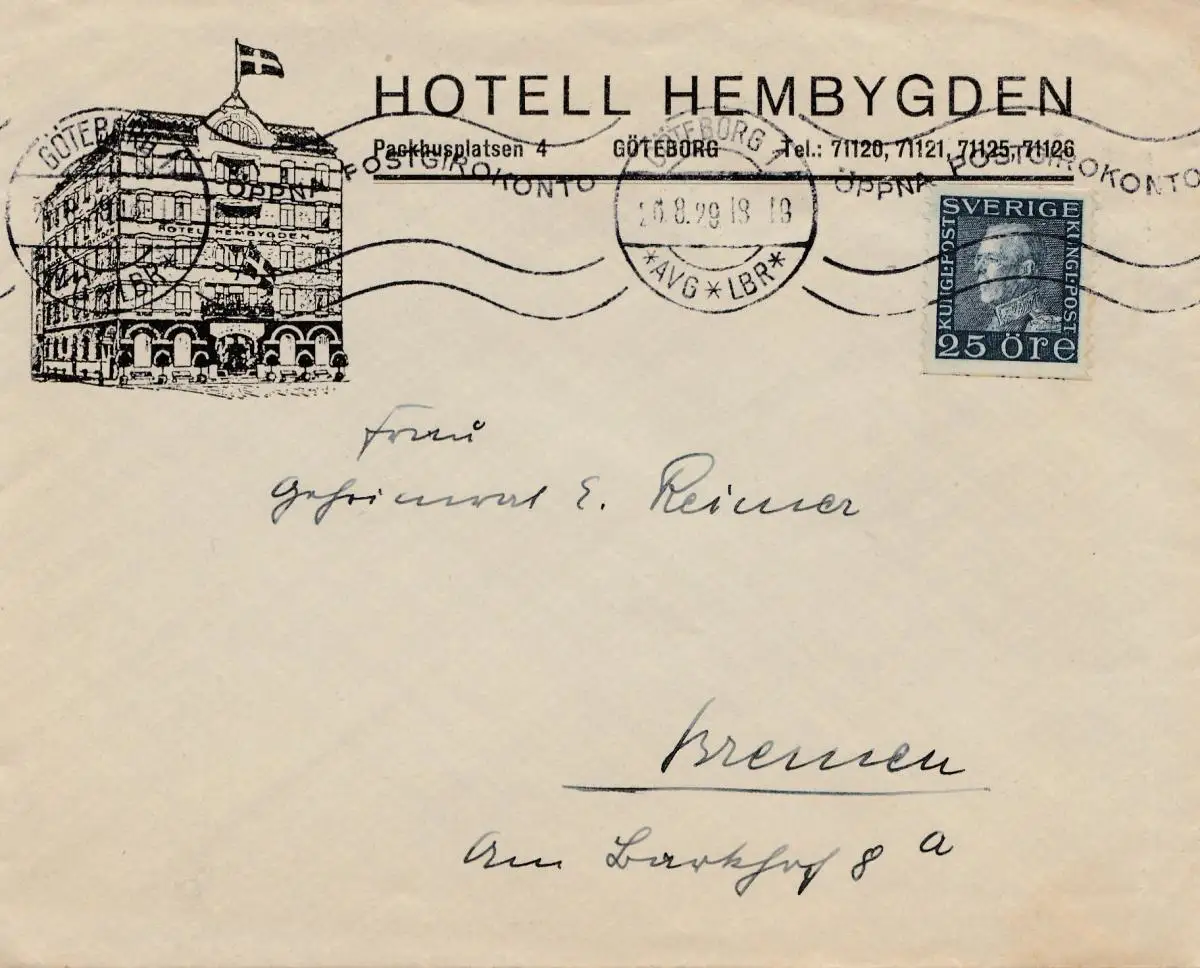 HOTELL HEMBYGDEN
Packhusplatsen 4 GÖTEBORG Tel.: 71120, 71121, 71125, 71126
GÖTEBORG 1
LBR*
ÖPPNA POSTGIROKONTO
GÖTEBORG 1
20.8.29 18-19
*AVG*LBR*
ÖPPNA POSTGIROKONTO
HOTELL HEMBYGDEN
SVERIGE
KUNGL·POST
KUNGL·POST
25 ÖRE
Frau
Geheimrat E. Reimer
Bremen
Am Barkhof 8 a